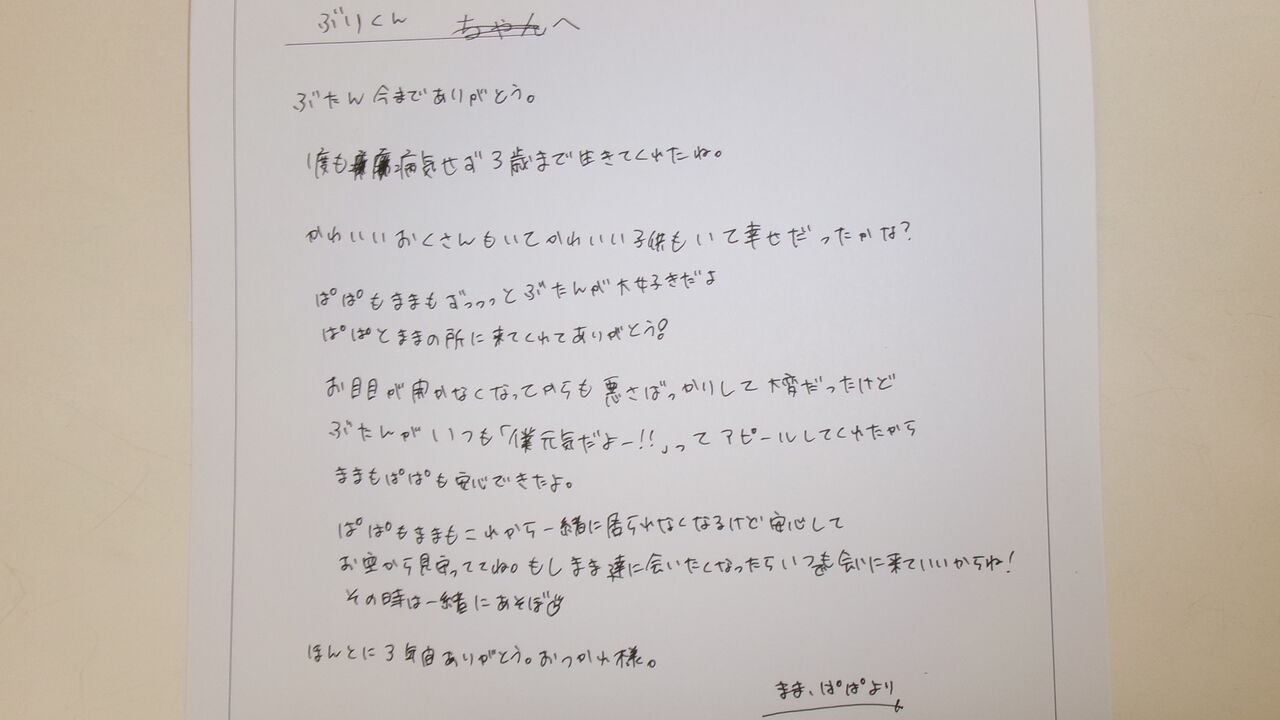 ぶりくん ちゃんへ
ぶたん今までありがとう。
1度も病気せず3歳まで生きてくれたね。
かわいいおくさんもいてかわいい子供もいて幸せだったかな?
ぱぱもままもずっっっとぶたんが大好きだよ
ぱぱとままの所に来てくれてありがとう!
お目目が開かなくなってからも悪さばっかりして大変だったけど
ぶたんがいつも「僕元気だよー!!」ってアピールしてくれたから
ままもぱぱも安心できたよ。
ぱぱもままもこれから一緒に居られなくなるけど安心して
お空から見守っててね。もしまま達に会いたくなったらいつでも会いに来ていいからね!
その時は一緒にあそぼ
ほんとに3年間ありがとう。おつかれ様。
まま、ぱぱより